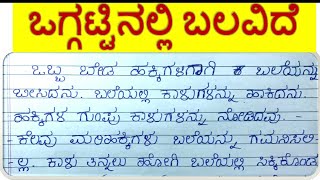 ಒಗ್ಗಟ್ಟಿನಲ್ಲಿ ಬಲವಿದೆ
ಒಬ್ಬ ಬೇಡ ಹಕ್ಕಿಗಳಗಾಗಿ ಬಲೆಯನ್ನು
ಬೀಸಿದನು. ಬಲೆಯಲ್ಲಿ ಕಾಳುಗಳನ್ನು ಹಾಕಿದನು.
ಹಕ್ಕಿಗಳ ಗುಂಪು ಕಾಳುಗಳನ್ನು ನೋಡಿದವು. -
- ಕೆಲವು ಮರಿಹಕ್ಕಿಗಳು ಬಲೆಯನ್ನು ಗಮನಿಸಲಿ
- ಲ್ಲ. ಕಾಳು ತಿನ್ನಲು ಹೋಗಿ ಬಲೆಯಲ್ಲಿ ಸಿಕ್ಕಿಕೊಂಡ